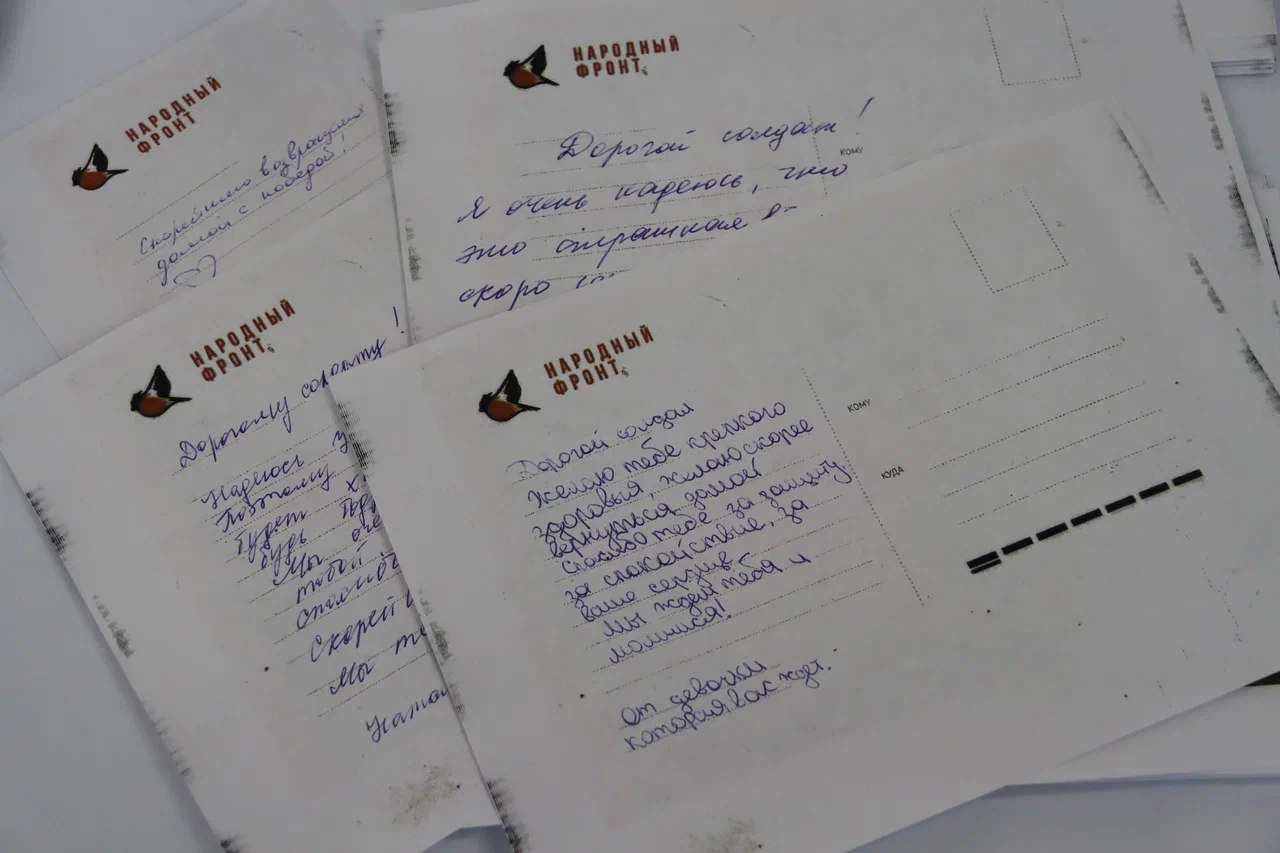 НАРОДНЫЙ
ФРОНТ
Скорейшего возвращения
домой с победой!
НАРОДНЫЙ
ФРОНТ
Дорогой солдат!
Я очень надеюсь, что
это страшная
скоро
КОМУ
НАРОДНЫЙ
ФРОНТ
Дорогому солдату!
Надеюсь у
Поэтому
Будет
Будь
Мы
любой
Скорей
Мы
НАРОДНЫЙ
ФРОНТ
Дорогой солдат
Желаю тебе крепкого
здоровья, желаю скорее
вернуться домой
Спасибо тебе за защиту
за спокойствие, за
ваше
Мы ждем тебя и
молимся!
От девочки
которая вас ждет.
КОМУ
КУДА